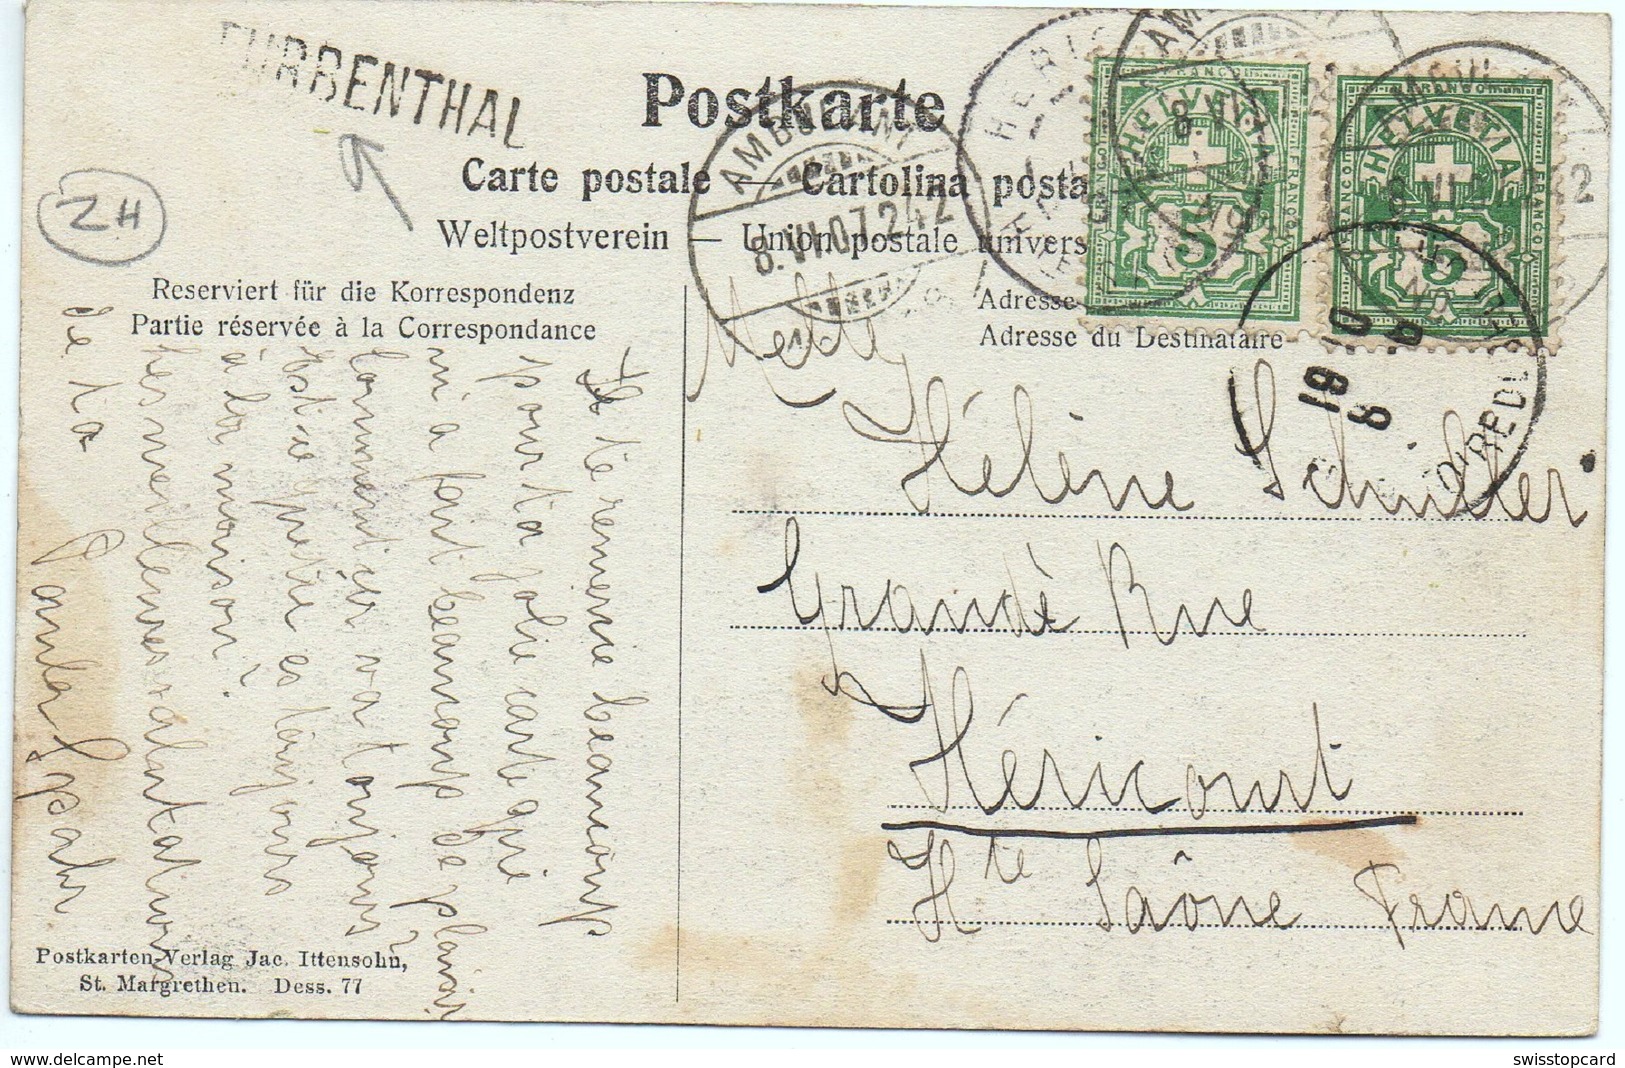 TURBENTHAL
ZH
Postkarte
Carte postale — Cartolina posta
Weltpostverein — Union postale univers
Reserviert für die Korrespondenz
Partie réservée à la Correspondance
Adresse
Adresse du Destinataire
AMBULANT
8.VI.07.242
HELVETIA
FRANCO
5
HELVETIA
FRANCO
5
Melle
Hélène Schiller
Grande Rue
Héricourt
Hte Saône France
Je te remercie beaucoup
pour ta jolie carte qui
m'a fait beaucoup de plaisir
Comment ça va toujours?
Est-ce que tu es toujours
à la maison?
mes meilleures salutations
de ta
Paula
Postkarten-Verlag Jac. Ittensohn,
St. Margrethen. Dess. 77
delcampe.net
swisstopcard